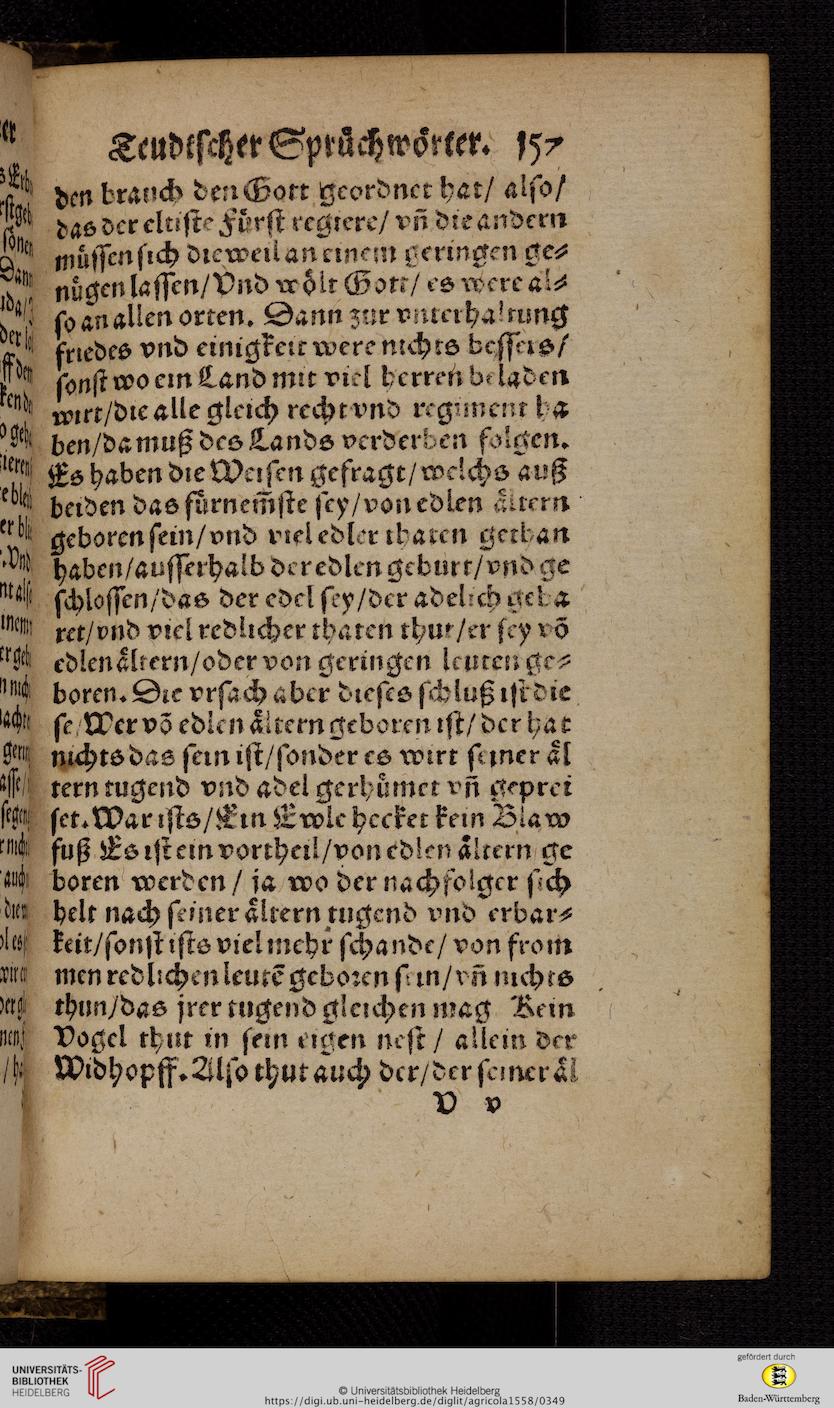 Teudtscher Sprüchwörter. 157
den brauch den Gott geordnet hat/ also/
das der eltiste Fürst regiere/ vñ die andern
müssen sich dieweil an einem geringen ge⸗
nügen lassen/Vnd wölt Gott/ es were al⸗
so an allen orten. Dann zur vnterhaltung
friedes vnd einigkeit were nichts bessers/
sonst wo ein Land mit viel herren beladen
wirt/die alle gleich recht vnd regiment ha
ben/da muß des Lands verderben folgen.
Es haben die Weisen gefragt/welchs auß
beiden das fürnem̃ste sey/von edlen ältern
geboren sein/vnd viel edler thaten gethan
haben/ausserhalb der edlen geburt/vnd ge
schlossen/das der edel sey/der adelich geba
ret/vnd viel redlicher thaten thut/er sey võ
edlen ältern/oder von geringen leuten ge⸗
boren. Die vrsach aber dieses schluß ist die
se/Wer võ edlen ältern geboren ist/der hat
nichts das sein ist/sonder es wirt seiner äl
tern tugend vnd adel gerhümet vñ geprei
set. War ists/Ein Ewle hecket kein Blaw
fuß Es ist ein vortheil/von edlen ältern ge
boren werden / ja wo der nachfolger sich
helt nach seiner ältern tugend vnd erbar⸗
keit/sonst ists viel mehr schande/ von from
men redlichen leutẽ geboren sein/vñ nichts
thun/das jrer tugend gleichen mag Kein
Vogel thut in sein eigen nest / allein der
Widhopff. Also thut auch der/der seiner äl
V v
UNIVERSITÄTS-
BIBLIOTHEK
HEIDELBERG
© Universitätsbibliothek Heidelberg
https://digi.ub.uni-heidelberg.de/diglit/agricola1558/0349
gefördert durch
Baden-Württemberg